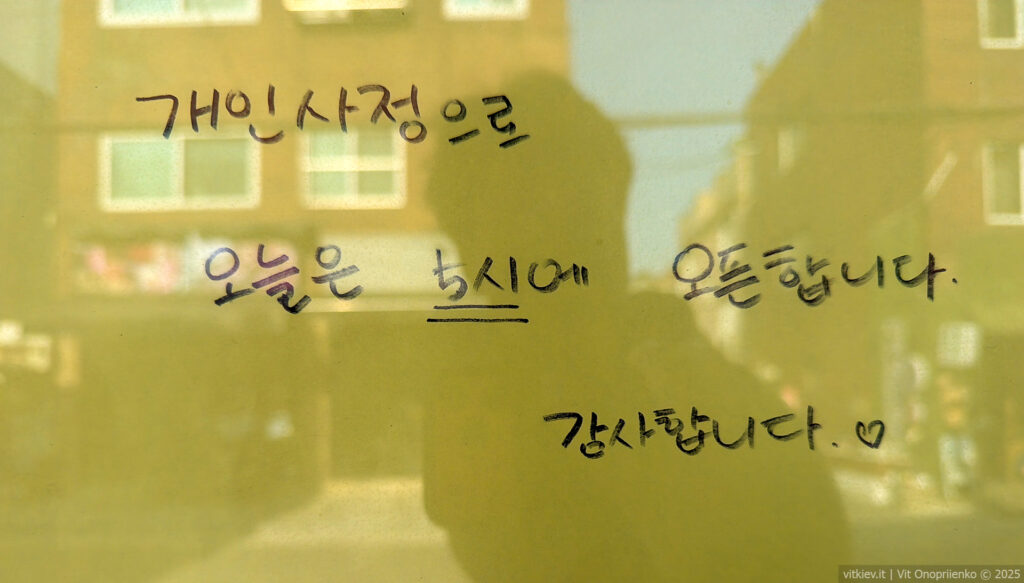 개인사정으로
오늘은 5시에 오픈합니다.
감사합니다. ♡
vitkiev.it | Vit Onopriienko © 2025